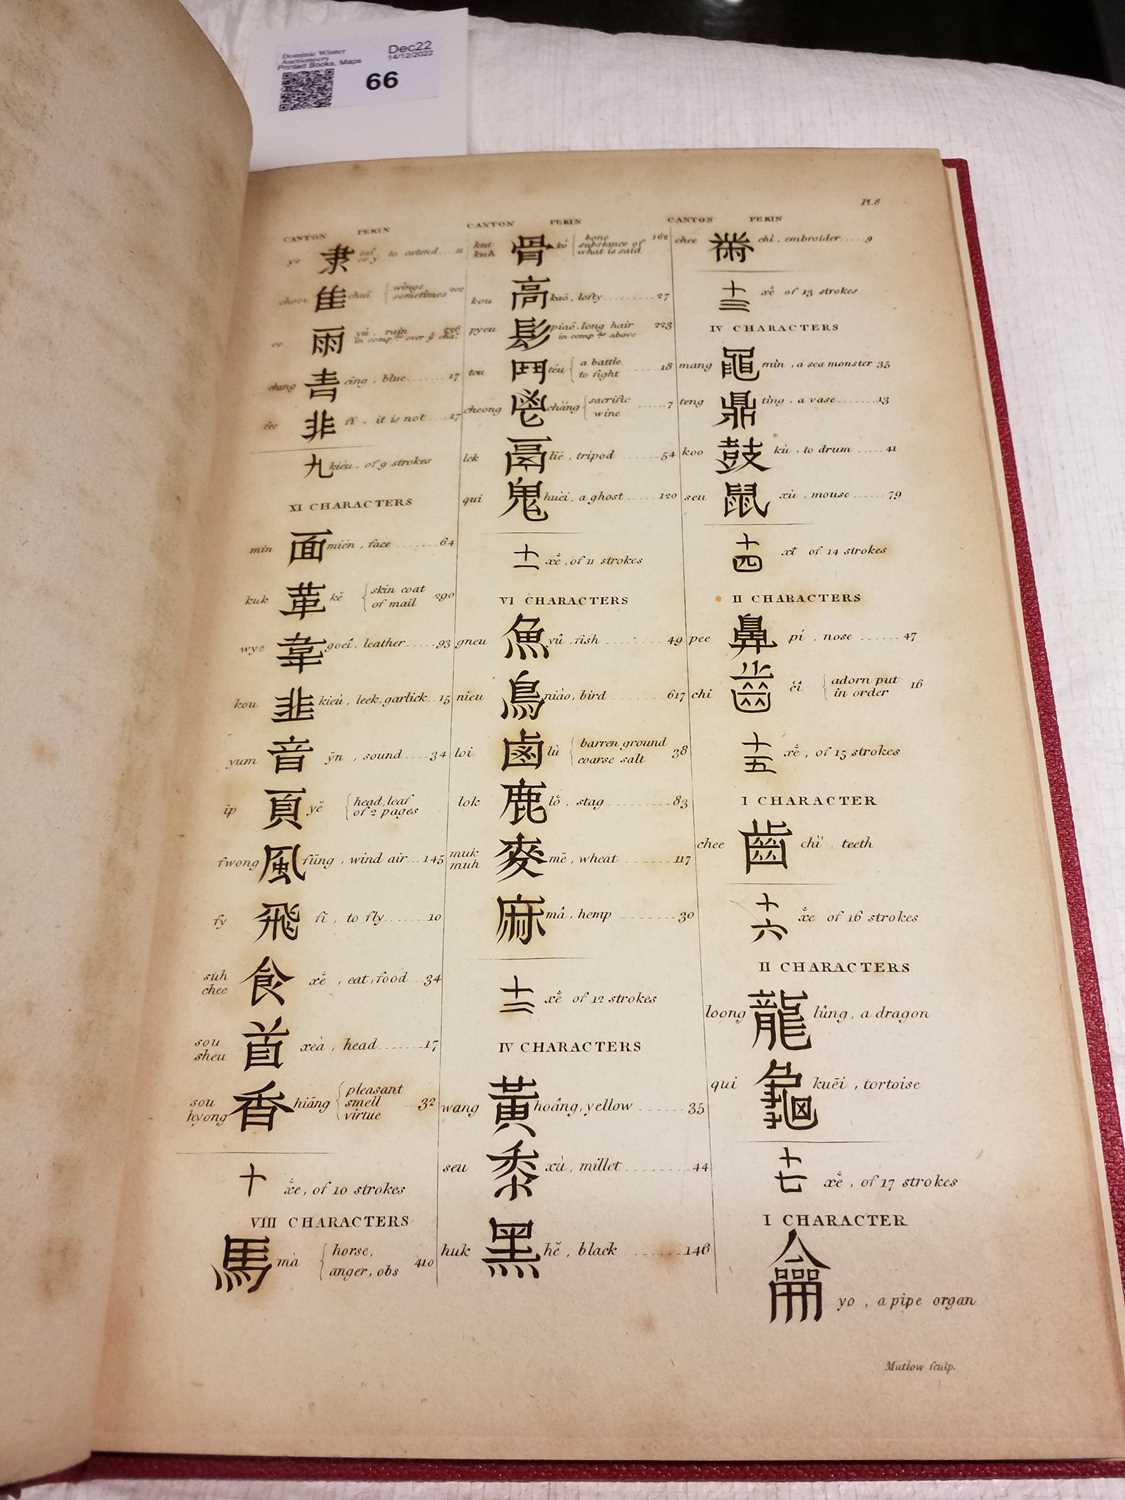 Dominic Winter
Auctioneers
Printed Books, Maps
Dec22
14/12/2022
66
Pl. 8
CANTON PEKIN
隶 to extend 11
隹 chuī wings sometimes
雨 yù, rain
青 cing, blue 17
非 fī, it is not 17
九 kieù, of 9 strokes
XI CHARACTERS
min 面 mién, face 64
kuk 革 kĕ skin coat of mail 290
韋 goeî, leather 93
kou 韭 kieù, leek, garlick 15
yum 音 ȳn, sound 34
ip 頁 yĕ head, leaf of 2 pages
fwong 風 fūng, wind air 145
fy 飛 fī, to fly 10
suh chee 食 xĕ, eat, food 34
sou sheu 首 xeà, head 17
sou hyong 香 hiāng pleasant smell virtue 32
十 xĕ, of 10 strokes
VIII CHARACTERS
馬 mà horse, anger, obs 410
CANTON PEKIN
kut kuh 骨 bone substance of what is said 162
kou 高 kaō, lofty 27
pyeu 髟 piaō, long hair in comp above 223
tou 鬥 téu a battle to fight 18
cheong 鬯 cháng sacrific wine 7
lek 鬲 liĕ, tripod 54
qui 鬼 huèi, a ghost 120
十一 xĕ, of 11 strokes
VI CHARACTERS
gneu 魚 yû, fish 49
nieu 鳥 niáo, bird 617
loi 鹵 lù barren ground coarse salt 38
lok 鹿 lŏ, stag 83
muk muh 麥 mĕ, wheat 117
麻 mâ, hemp 30
十二 xĕ of 12 strokes
IV CHARACTERS
wang 黃 hoâng, yellow 35
seu 黍 xù, millet 44
huk 黑 hĕ, black 146
CANTON PEKIN
chee 黹 chì, embroider 9
十三 xĕ of 13 strokes
IV CHARACTERS
mang 黽 mìn, a sea monster 35
teng 鼎 tìng, a vase 13
koo 鼓 kù, to drum 41
seu 鼠 xù, mouse 79
十四 xĕ of 14 strokes
II CHARACTERS
pee 鼻 pí, nose 47
chi 齒 adorn put in order 16
十五 xĕ, of 15 strokes
I CHARACTER
chee 齒 chì teeth
十六 xĕ of 16 strokes
II CHARACTERS
loong 龍 lûng, a dragon
qui 龜 kuēi, tortoise
十七 xĕ, of 17 strokes
I CHARACTER
龠 yo, a pipe organ
Mutlow sculp.